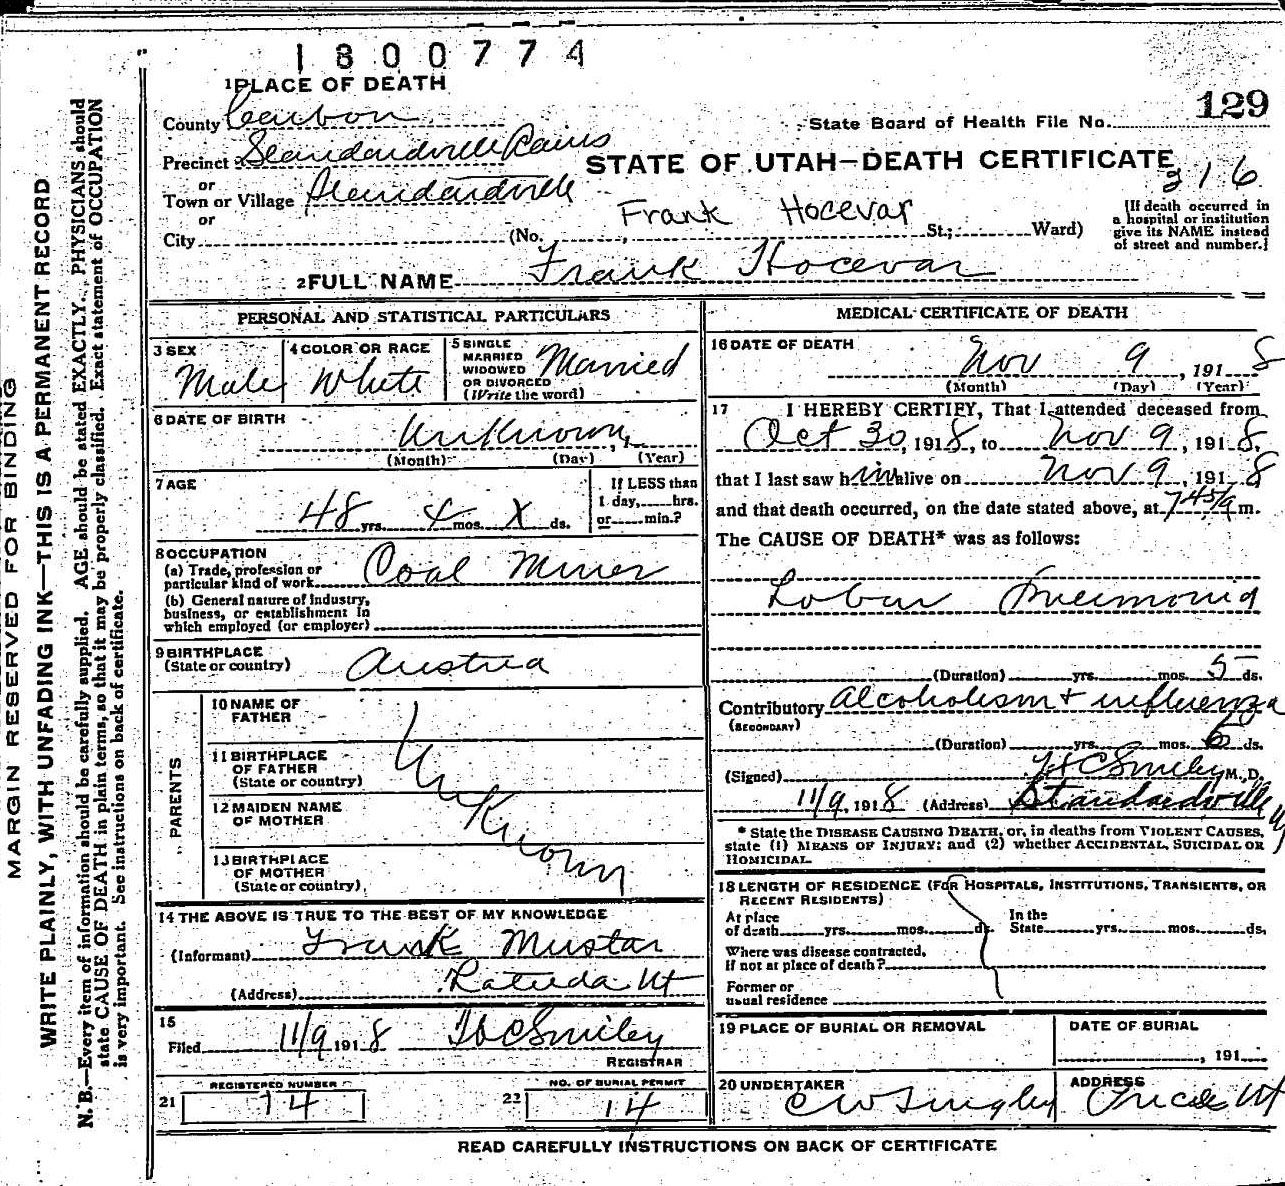 1800774
1 PLACE OF DEATH
129
County Carbon
State Board of Health File No.
Precinct Standardville Rains
STATE OF UTAH—DEATH CERTIFICATE
216
or
Town or Village Standardville
or
Frank Hocevar
City (No. St.; Ward)
[If death occurred in
a hospital or institution
give its NAME instead
of street and number.]
2 FULL NAME Frank Hocevar
PERSONAL AND STATISTICAL PARTICULARS
3 SEX
Male
4 COLOR OR RACE
White
5 SINGLE
MARRIED
WIDOWED
OR DIVORCED
(Write the word)
Married
6 DATE OF BIRTH
Unknown
(Month) (Day) (Year)
7 AGE
48 yrs. 4 mos. X ds.
If LESS than
1 day, hrs.
or min.?
8 OCCUPATION
(a) Trade, profession or
particular kind of work Coal Miner
(b) General nature of Industry,
business, or establishment in
which employed (or employer)
9 BIRTHPLACE
(State or country) Austria
PARENTS
10 NAME OF
FATHER
11 BIRTHPLACE
OF FATHER
(State or country)
12 MAIDEN NAME
OF MOTHER
13 BIRTHPLACE
OF MOTHER
(State or country)
Unknown
14 THE ABOVE IS TRUE TO THE BEST OF MY KNOWLEDGE
(Informant) Frank Mustar
(Address) Latuda Ut
15
Filed 11/9 1918 H C Smiley
REGISTRAR
21
REGISTERED NUMBER
14
22
NO. OF BURIAL PERMIT
14
MEDICAL CERTIFICATE OF DEATH
16 DATE OF DEATH
Nov 9, 1918
(Month) (Day) (Year)
17 I HEREBY CERTIFY, That I attended deceased from
Oct 30, 1918, to Nov 9, 1918,
that I last saw him alive on Nov 9, 1918
and that death occurred, on the date stated above, at 745a m.
The CAUSE OF DEATH* was as follows:
Lobar Pneumonia
(Duration) yrs. mos. 5 ds.
Contributory Alcoholism + influenza
(SECONDARY)
(Duration) yrs. mos. 6 ds.
(Signed) H C Smiley M. D.
11/9, 1918 (Address) Standardville U
* State the DISEASE CAUSING DEATH, or, in deaths from VIOLENT CAUSES,
state (1) MEANS OF INJURY; and (2) whether ACCIDENTAL, SUICIDAL OR
HOMICIDAL.
18 LENGTH OF RESIDENCE (FOR HOSPITALS, INSTITUTIONS, TRANSIENTS, OR
RECENT RESIDENTS)
At place
of death yrs. mos. ds.
In the
State yrs. mos. ds.
Where was disease contracted,
If not at place of death?
Former or
usual residence
19 PLACE OF BURIAL OR REMOVAL
DATE OF BURIAL
, 191
20 UNDERTAKER
C W Singley
ADDRESS
Price Ut
READ CAREFULLY INSTRUCTIONS ON BACK OF CERTIFICATE
MARGIN RESERVED FOR BINDING
WRITE PLAINLY, WITH UNFADING INK—THIS IS A PERMANENT RECORD
N. B.—Every item of information should be carefully supplied. AGE should be stated EXACTLY. PHYSICIANS should
state CAUSE OF DEATH in plain terms, so that it may be properly classified. Exact statement of OCCUPATION
is very important. See instructions on back of certificate.